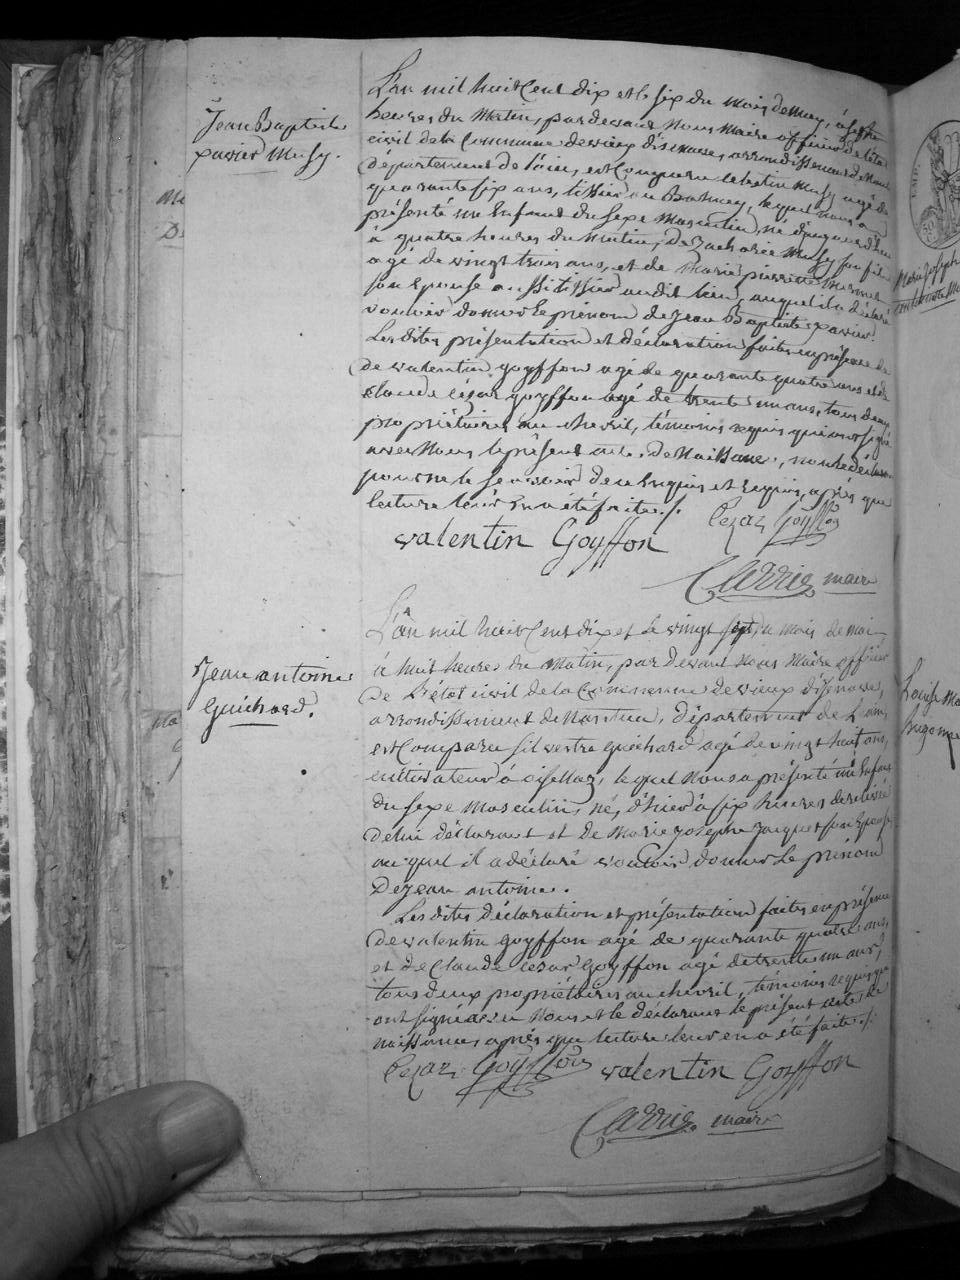 Jean Baptiste
xavier Musy.
L'an mil huit Cent dix et le six du mois de may, à sept
heures du Matin, par devant Nous Maire officier de l'état
civil de la Commune de vieux d'isenave, arrondissement de Nantua
département de l'ain, est Comparu Celestin Musy agé de
quarante six ans, tissier au Balmay, lequel nous a
présenté un Enfant du sexe Masculin, né d'aujourd'hui
à quatre heures du Matin, de Zacharie Musy son fils
agé de vingt trois ans, et de Marie pierrette
son Epouse aussi tissier audit lieu, auquel il a déclaré
vouloir donner le prénom de Jean Baptiste xavier.
Les dites présentation et déclaration faites en présence de
de valentin goyffon agé de quarante quatre ans et de
Claude Cézar goyffon agé de trente un ans, tous deux
propriétaires au chevril, témoins requis qui ont signé
avec Nous le présent acte de Naissance, non le déclarant
pour ne le scavoir de ce Enquis et requis, après que
lecture leur en a été faite ./.
Cezar Goyffon
valentin Goyffon
Carrier maire
Jean antoine
Guichard.
L'an mil huit Cent dix et le vingt sept du mois de mai
à huit heures du Matin, par devant Nous Maire officier
de l'état civil de la Commune de vieux d'isenave,
arrondissement de Nantua, département de l'ain,
est Comparu silvestre guichard agé de vingt huit ans,
cultivateur à oisellaz, lequel Nous a présenté un Enfant
du sexe Masculin, né, d'hier à six heures
de lui déclarant et de Marie Josephe Jacquet son Epouse
au quel il a déclaré vouloir donner le prénom
De Jean antoine.
Les dites déclaration et présentation faites en présence
de valentin goyffon agé de quarante quatre ans,
et de Claude Cezar Goyffon agé de trente un ans,
tous deux propriétaires au chevril, témoins requis qui
ont signé avec Nous et le déclarant le présent acte de
naissance, après que lecture leur en a été faite ./.
Cezar Goyffon valentin Goyffon
Carrier maire
Marie Joseph